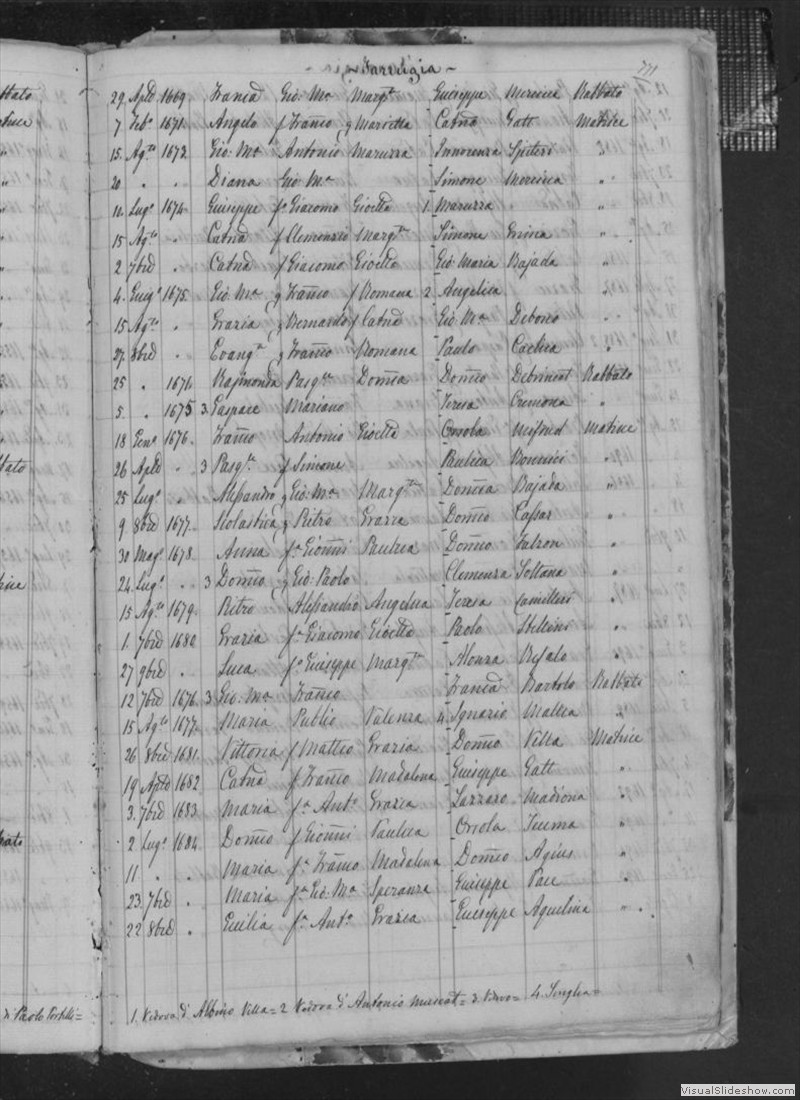 Farrugia
771
29 Aple 1669 Franca Gio: Ma Margta Giuseppe Mercieca Rabbato
7 Febo 1671 Angelo f Franco g Marietta Catna Gatt Matrice
15 Agto 1673 Gio: Ma Antonio Maruzza Innocenza Spiteri "
20 " " Diana Gio Ma Simone Mercieca "
10 Lugo 1674 Giuseppe fo Giacomo Gioetta 1 Maruzza "
15 Agto " Catna f Clemenzio Margta Simone "
2 7bre " Catna f Giacomo Gioetta Gio Maria Bajada "
4 1675 Gio Ma g Franco f Romana 2 Angelica "
15 Agto " Grazia g Bernardo f Catna Gio: Ma Debono "
27 8bre " Evangta g Franco Romana Paulo Cachia "
25 " 1671 Rajmonda Pasqle Domca Domco Debrincat Rabbato
5 " 1675 3 Gaspare Mariano Teresa Cremona "
18 Geno 1676 Franco Antonio Gioetta Orsola Mifsud Matrice
26 Aple " 3 Pasqle f Simone Paulica Bonnici "
25 Lugo " Alessandro g Gio: Ma Margta Domca Bajada "
9 8bre 1677 Scolastica g Pietro Grazia Domco Cassar "
30 Mago 1678 Anna fa Gionni Paulica Domco Falzon "
24 Lugo " 3 Domco g Gio: Paolo Clemenza Soltana "
15 Agto 1679 Pietro Alessandro Angelica Teresa Camilleri "
1 7bre 1680 Grazia fa Giacomo Gioetta Paolo "
27 9bre " Luca fo Giuseppe Margta Alonza "
12 7bre 1676 3 Gio: Ma Franco Franca Bartolo Rabbato
15 Agto 1677 Maria Publio Valenza 4 Ignazio Mallia "
26 8bre 1681 Vittoria f Matteo Grazia Domco Vella Matrice
19 Aple 1682 Catna f Franco Madalena Giuseppe Gatt "
3 7bre 1683 Maria fa Anto Grazia Lazzaro Madiona "
2 Lugo 1684 Domco f Gionni Paulica Orsola Xuema "
11 " " Maria fa Franco Madalena Domco Agius "
23 7bre " Maria fa Gio: Ma Speranza Giuseppe Pace "
22 8bre " Cicilia fa Anto Grazia Giuseppe Aquilina "
1. Vedova d' Albino Vella = 2 Vedova d' Antonio Muscat = 3. Vedovo = 4. Senglea =
VisualSlideshow.com